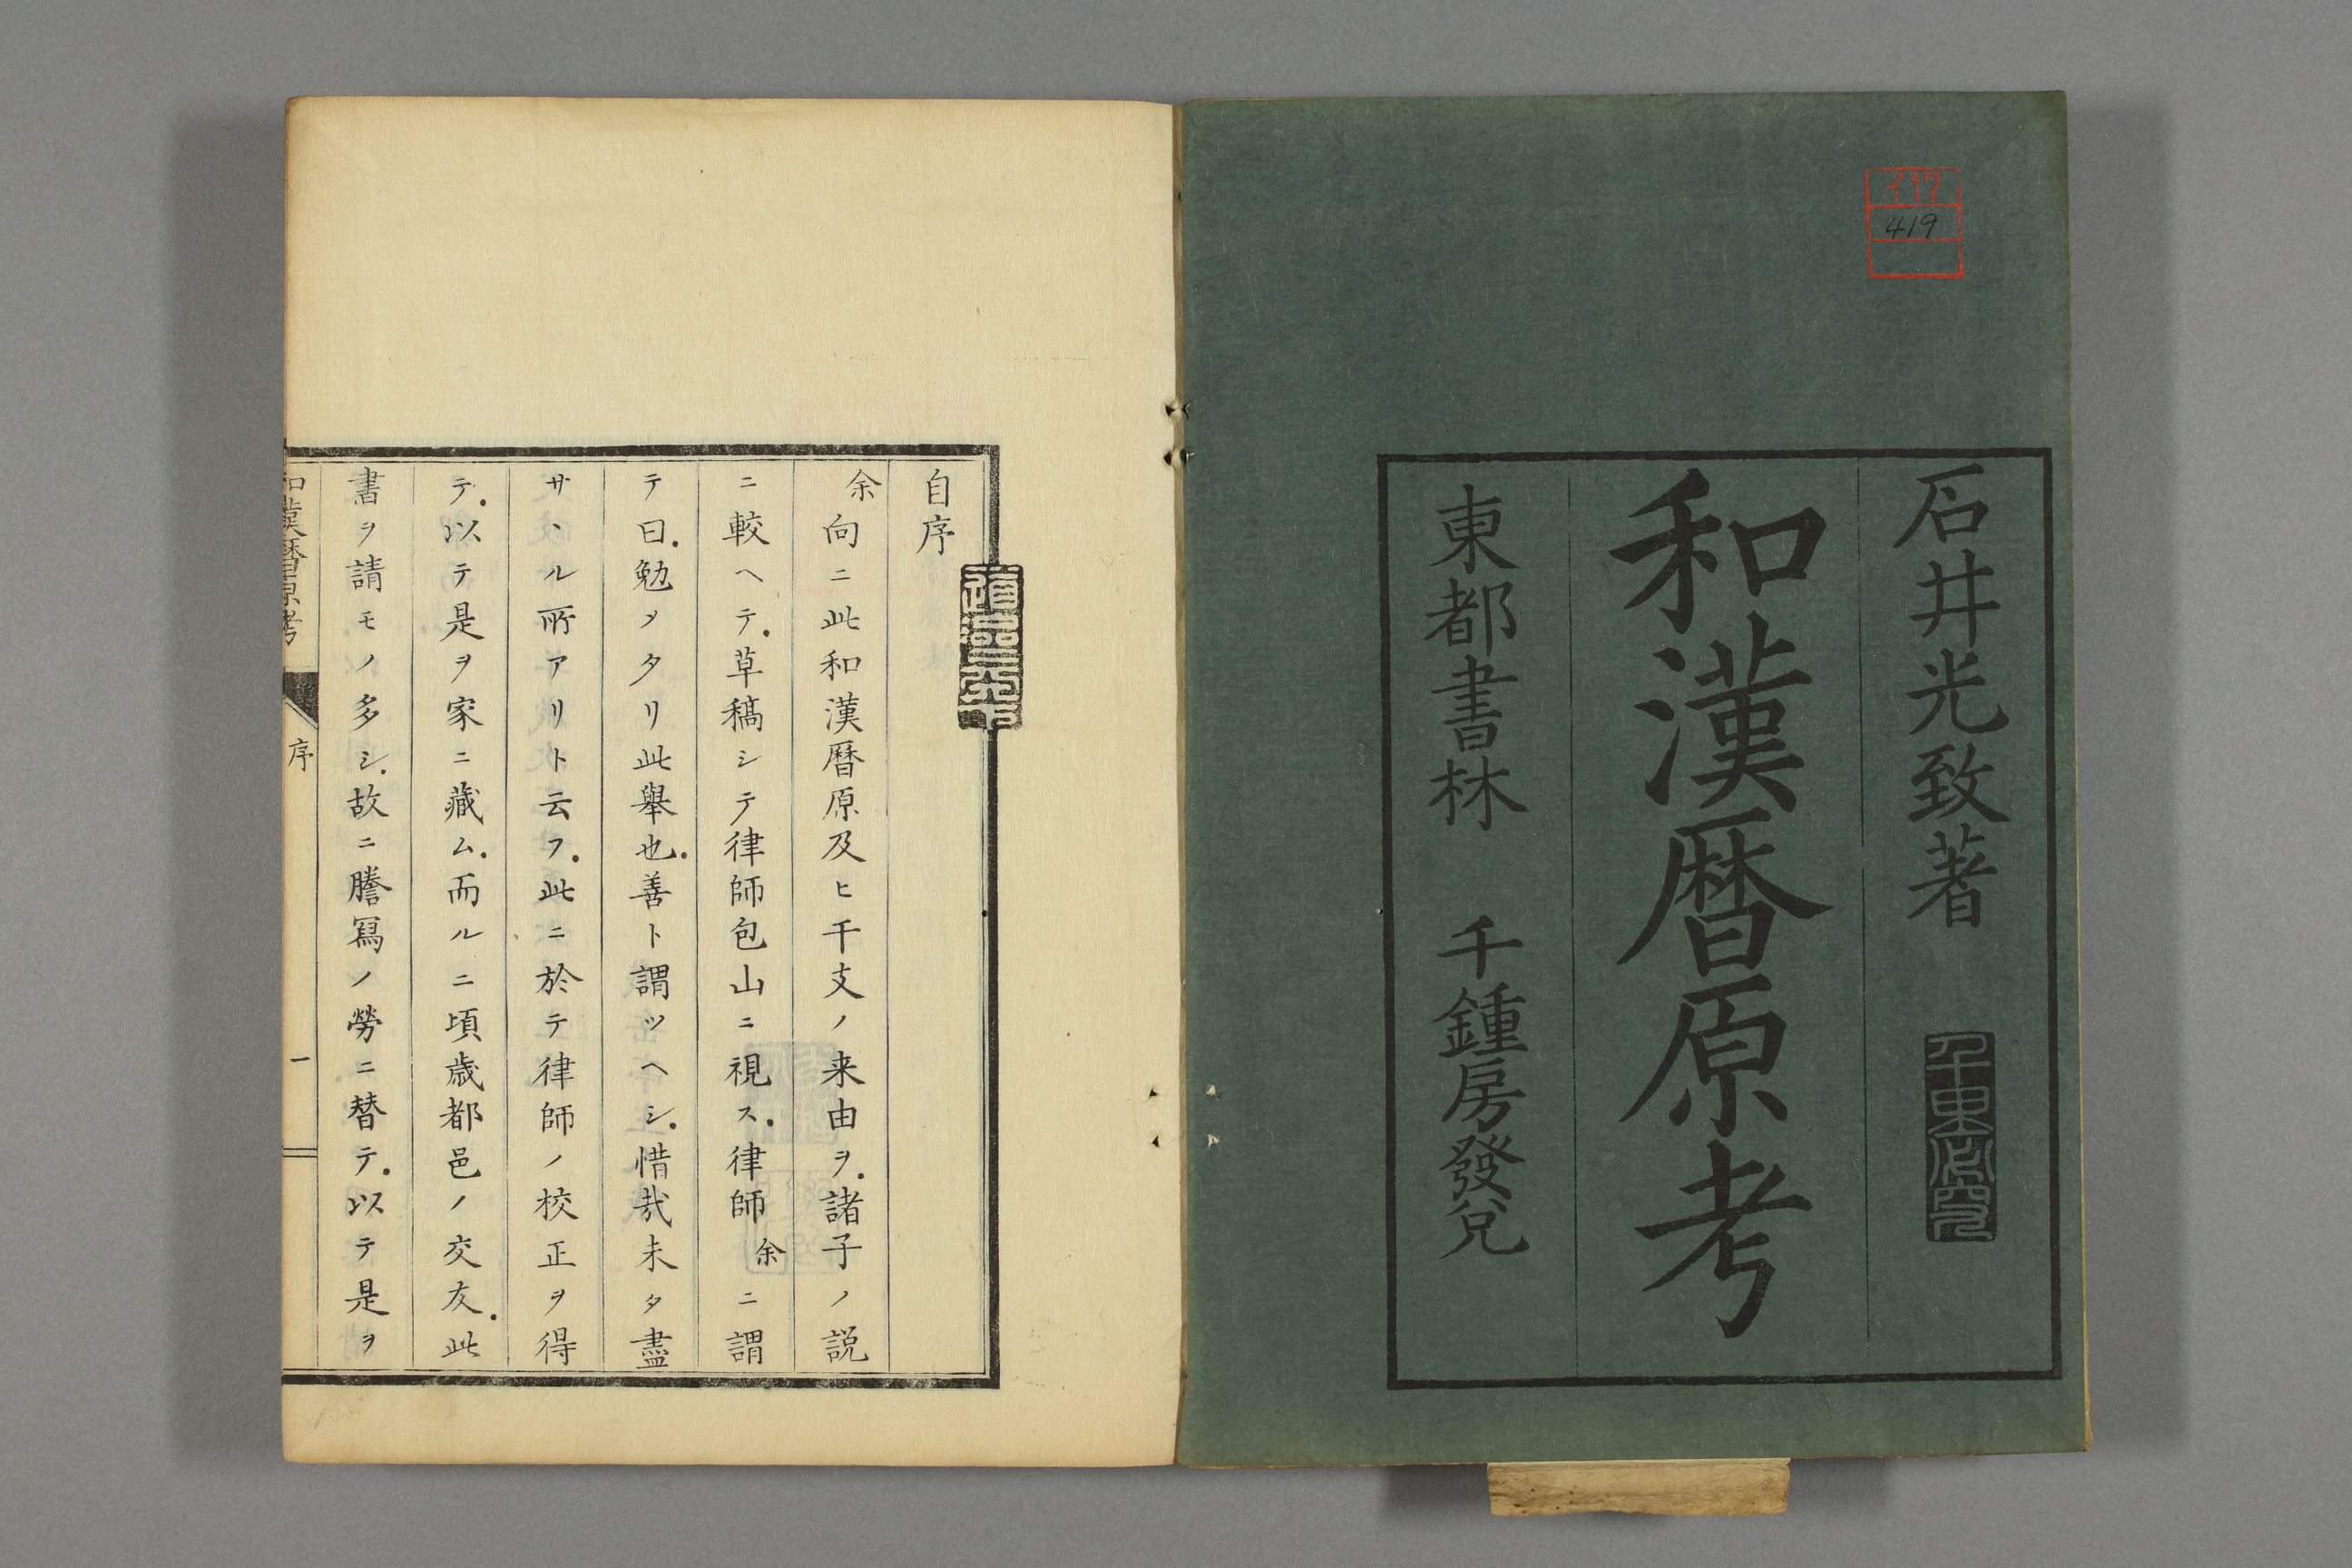 石井光致著
和漢暦原考
東都書林 千鍾房發兌
419
自序
余向ニ此和漢暦原及ヒ干支ノ来由ヲ.諸子ノ説
ニ較ヘテ.草稿シテ律師包山ニ視ス.律師余ニ謂
テ曰.勉メタリ此舉也.善ト謂ツヘシ.惜哉未タ盡
サヽル所アリト云フ.此ニ於テ律師ノ校正ヲ得
テ.以テ是ヲ家ニ藏ム.而ルニ頃歳都邑ノ交友.此
書ヲ請モノ多シ.故ニ謄冩ノ勞ニ替テ.以テ是ヲ
和漢暦原考 序 一